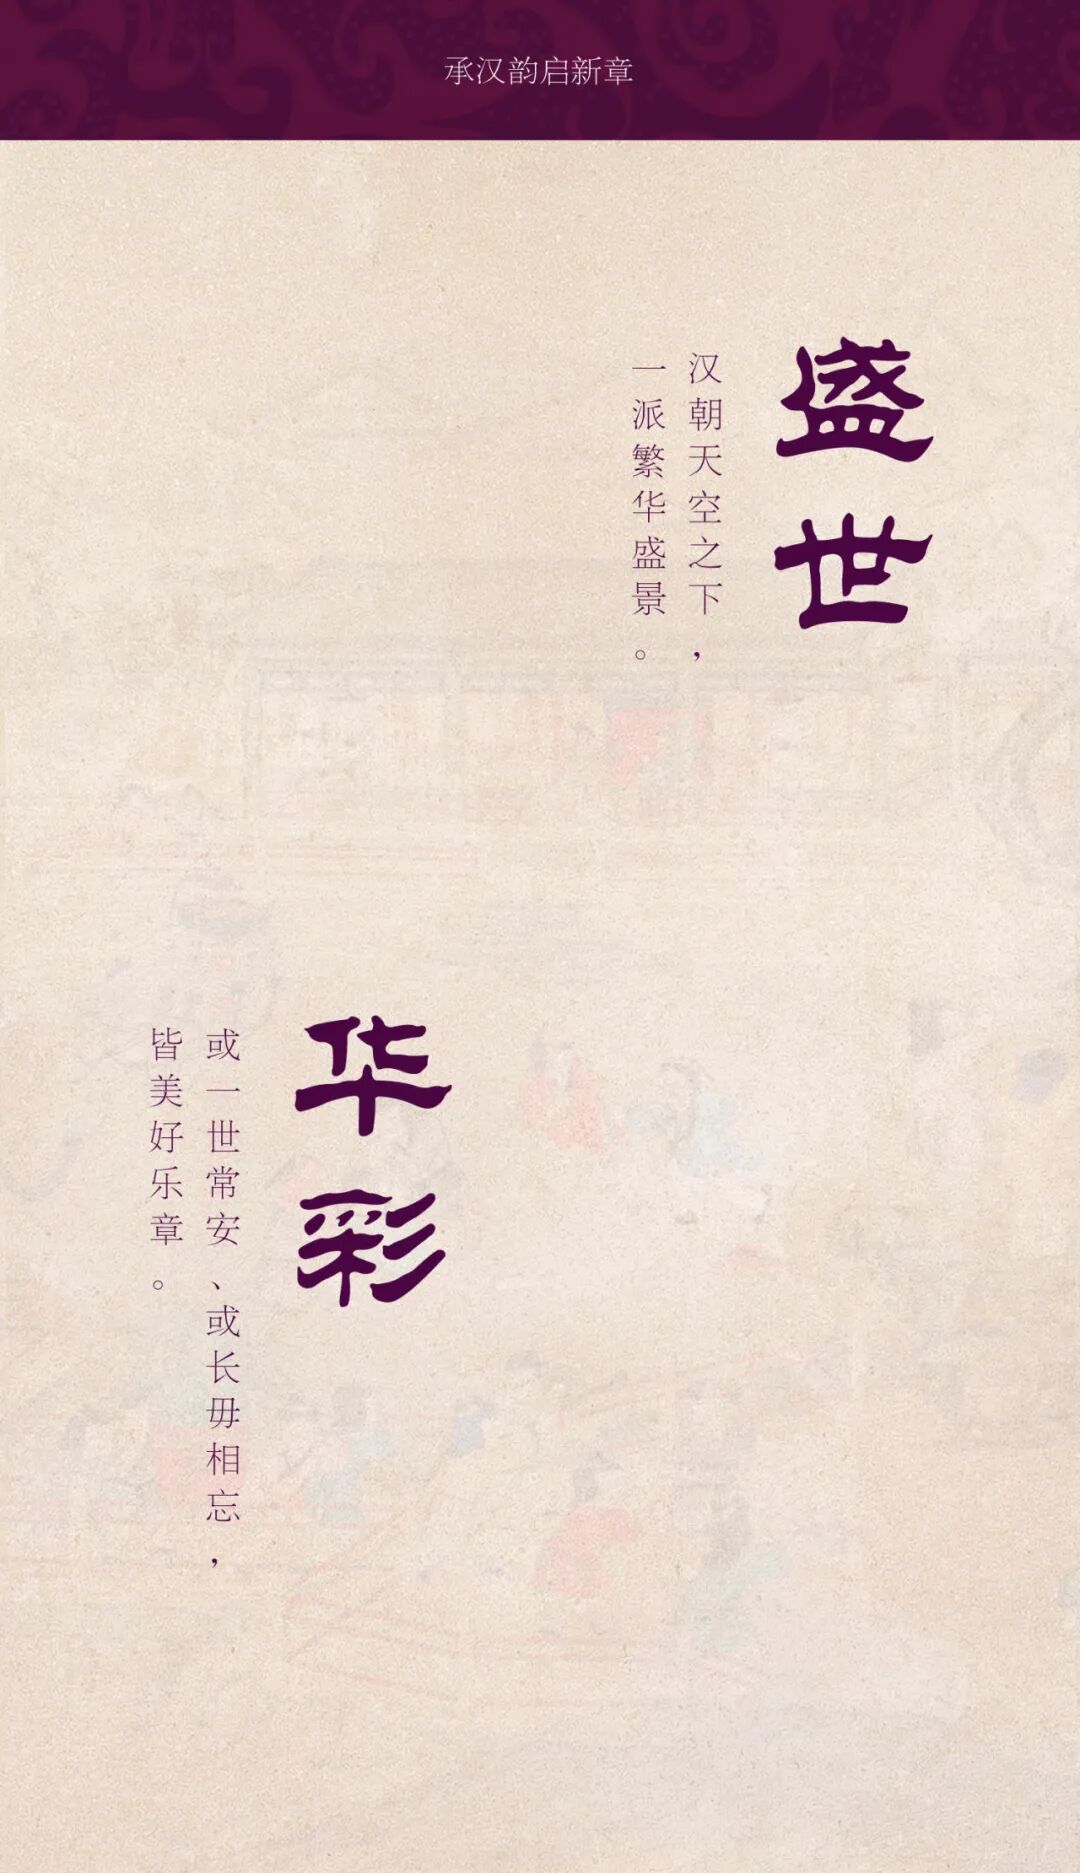 承汉韵启新章
盛世
汉朝天空之下，
一派繁华盛景。
华彩
或一世常安、或长毋相忘，
皆美好乐章。